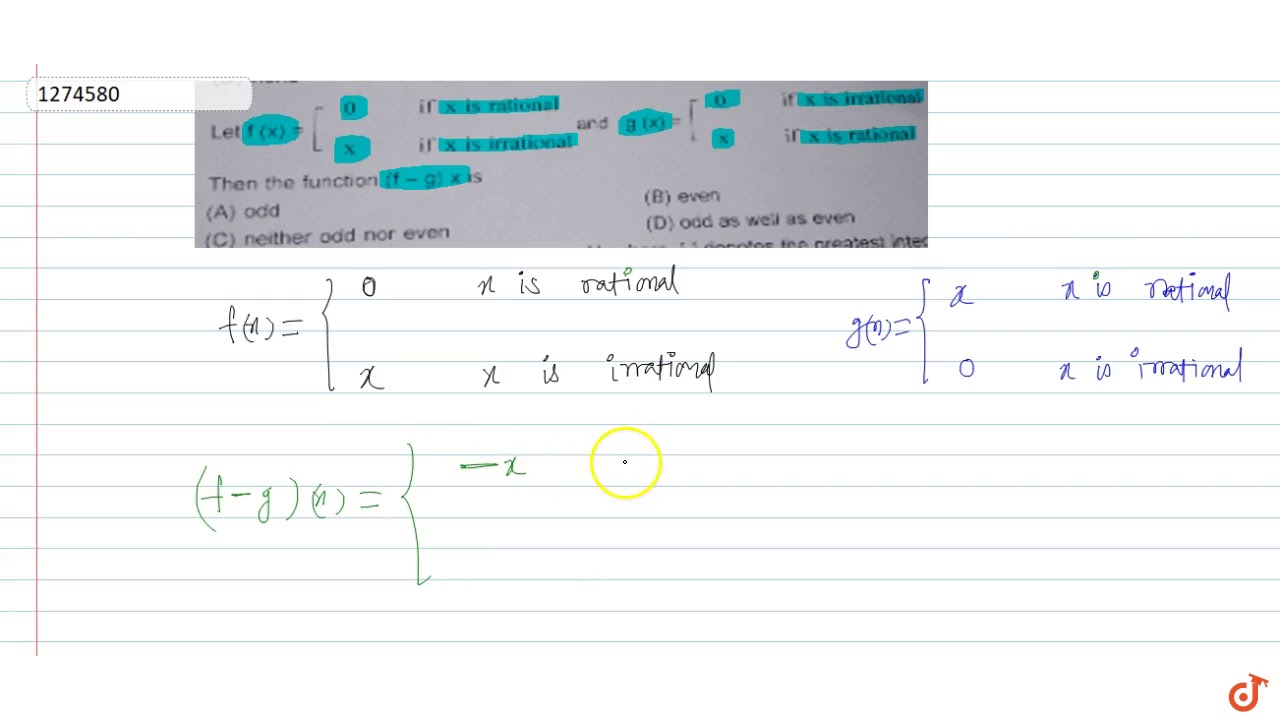 1274580
Let f (x) = [ 0 if x is rational and g (x) = [ 0 if x is irrational
x if x is irrational x if x is rational
Then the function (f – g) x is
(A) odd (B) even
(C) neither odd nor even (D) odd as well as even
denotes the greatest
f(x) = { 0 x is rational g(x) = { x x is rational
x x is irrational 0 x is irrational
(f – g)(x) = { –x